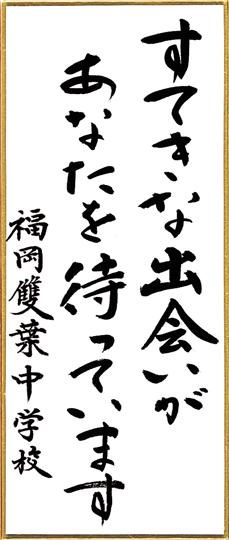 すてきな出会いが
あなたを待っています
福岡雙葉中学校